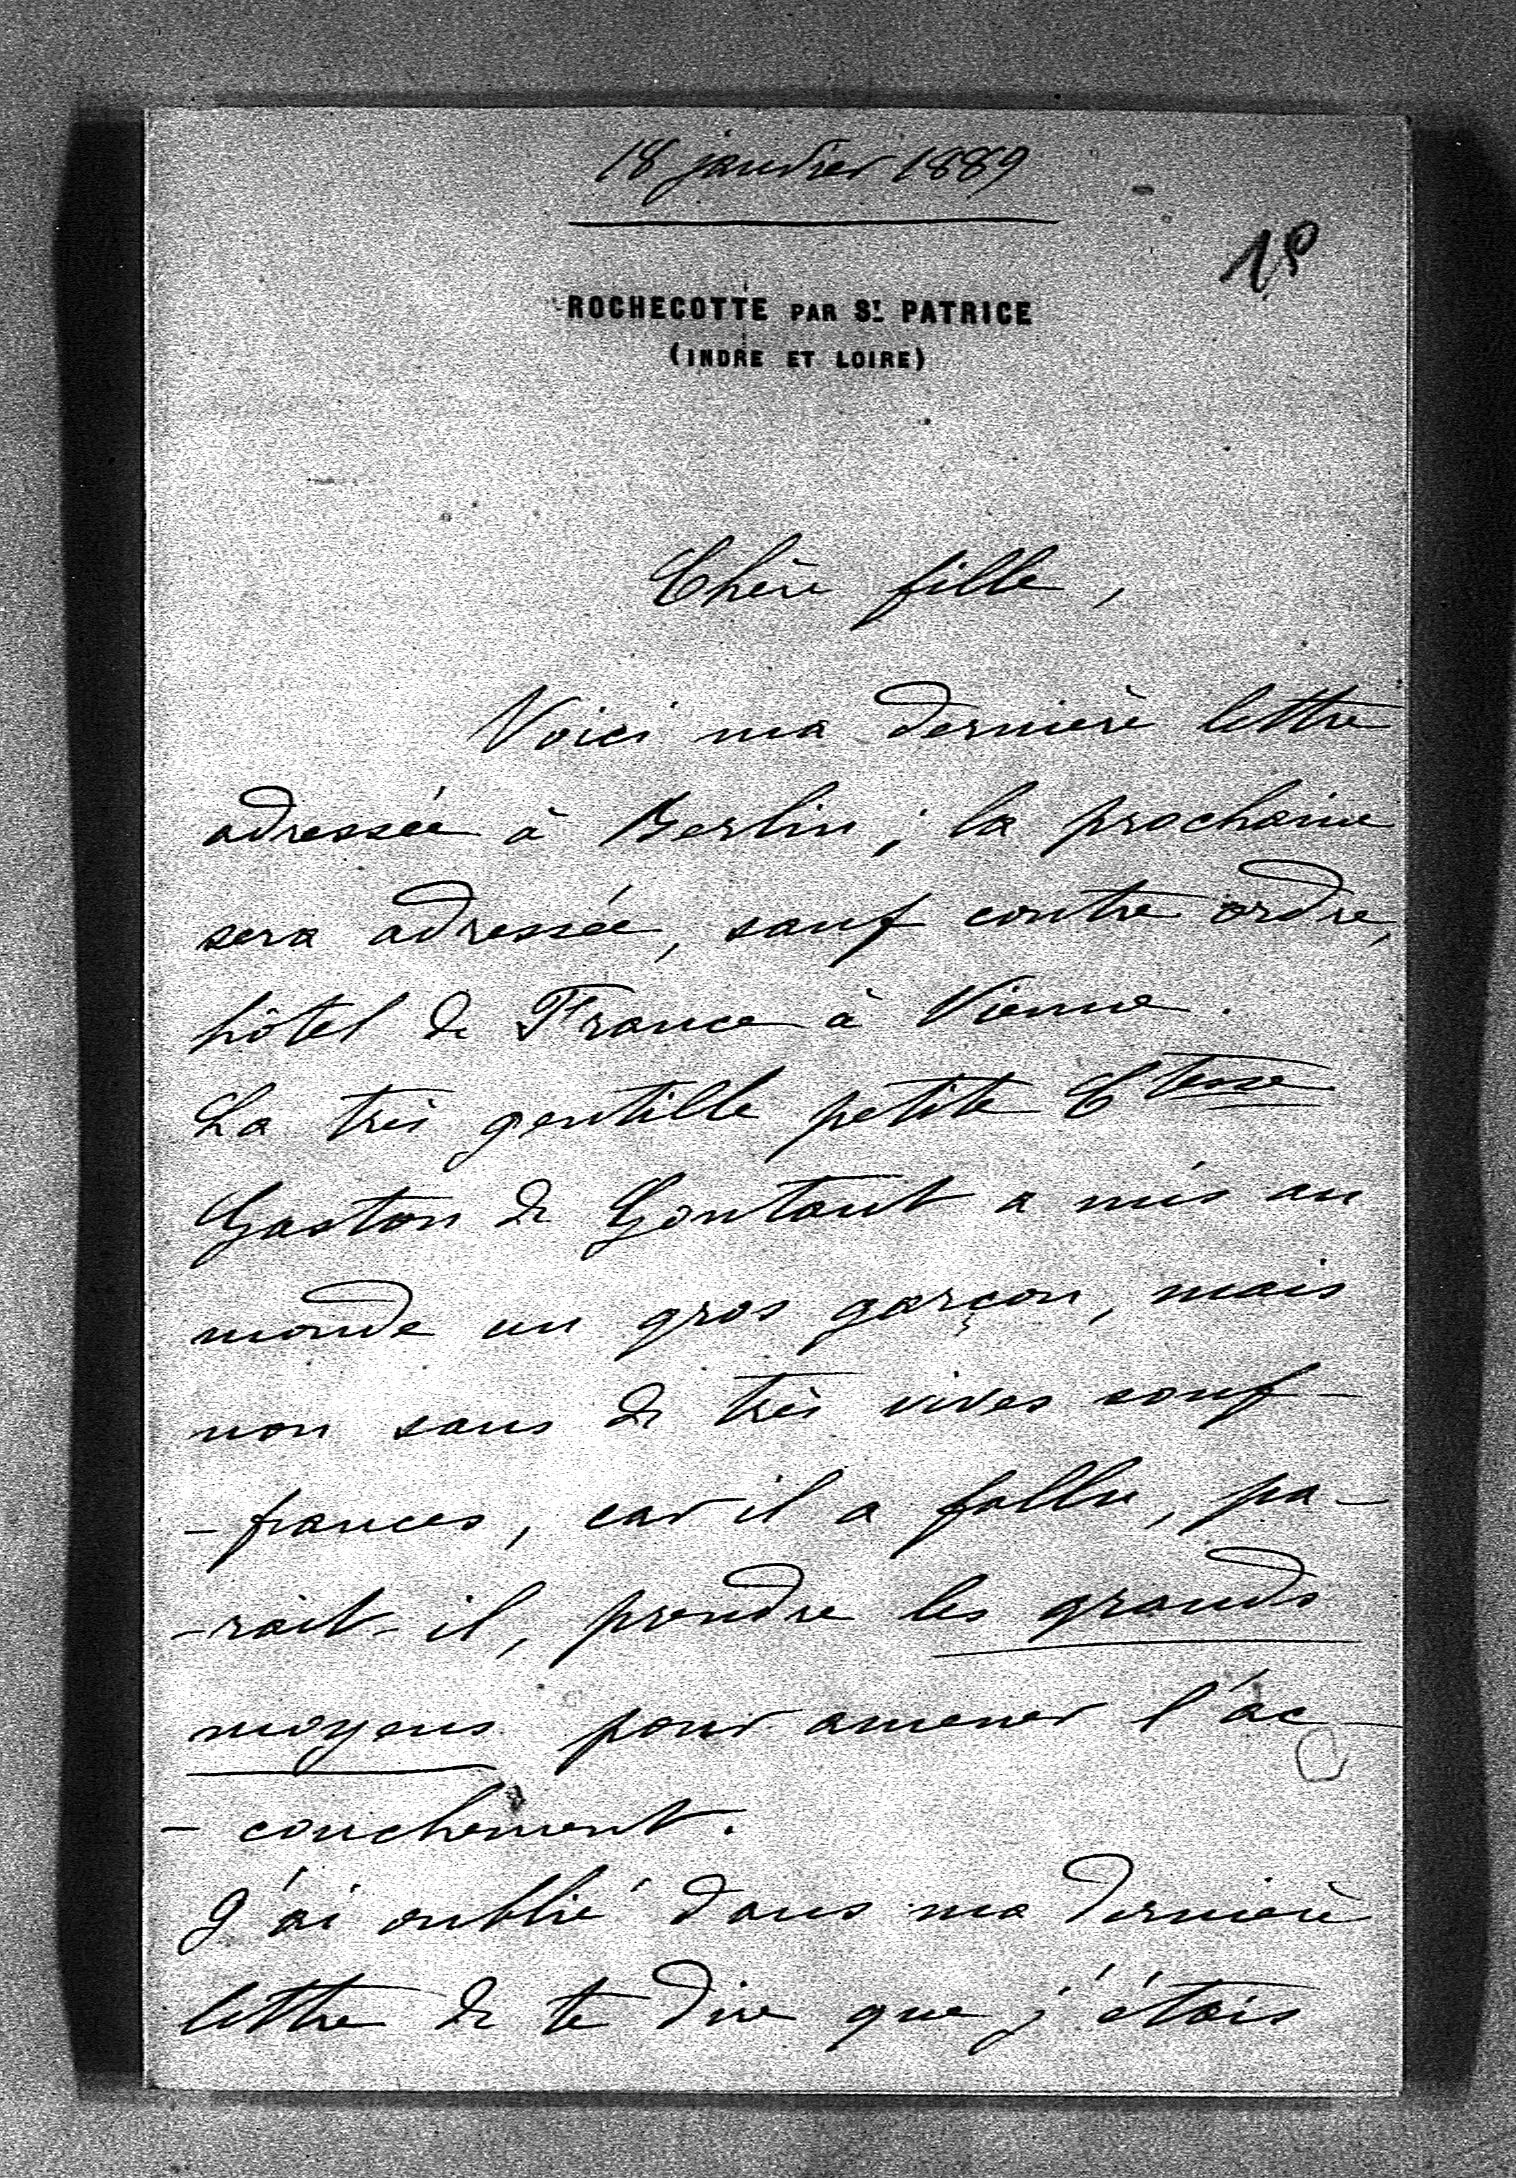 18 janvier 1889
ROCHECOTTE PAR St. PATRICE
(INDRE ET LOIRE)
Chère fille,
Voici ma dernière lettre
adressée à Berlin ; la prochaine
sera adressée, sauf contre ordre,
hôtel de France à Vienne.
La très gentille petite Ctesse
Gaston de Gontaut a mis au
monde un gros garçon, mais
non sans de très vives souf-
-frances, car il a fallu, pa-
-rait-il, prendre les grands
moyens pour amener l'ac-
-couchement.
J'ai oublié dans ma dernière
lettre de te dire que j'étais